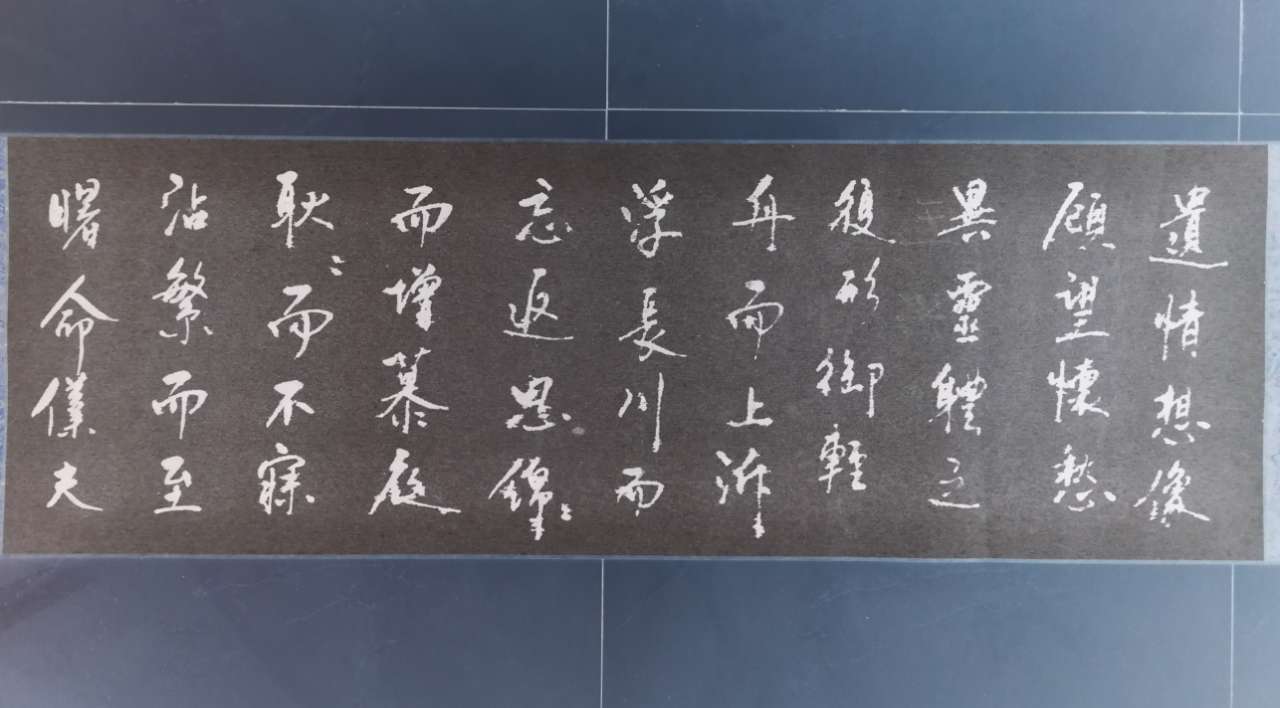 遺情想像
顧望懷愁
冀靈體之
復形御輕
舟而上泝
浮長川而
忘返思綿〻
而增慕夜
耿〻而不寐
沾繁而至
曙命僕夫